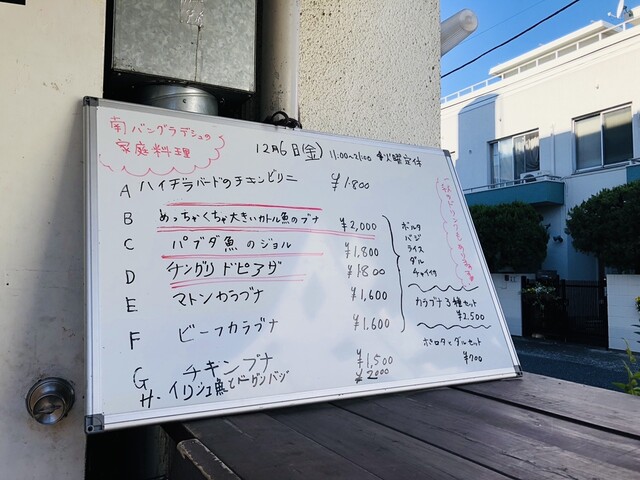 南バングラデシュの
家庭料理
12月6日(金) 11:00〜21:00 火曜定休
A ハイデラバードのチキンビリヤニ ¥1.800
B めっちゃくちゃ大きいカトル魚のブナ ¥2,000
C パブダ魚のジョル ¥1.800
D チングリ ドピアザ ¥1800
E マトンカラブナ ¥1,600
F ビーフカラブナ ¥1.600
G チキンブナ ¥1,500
H. イリシュ魚とベーグンバジ ¥2000
ボルタ
バジ
ライス
ダル
チャイ付
カラブナ3種セット
¥2.500
ポロタとダルセット
¥700